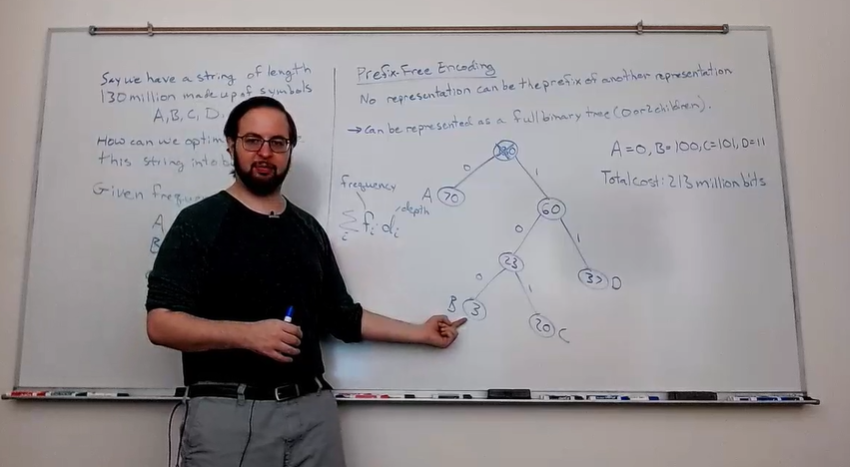 Say we have a string of length
130 million made up of symbols
A, B, C, D.
How can we
this string into
Given
A
B
Prefix-Free Encoding
No representation can be the prefix of another representation
→ can be represented as a full binary tree (0 or 2 children).
A=0, B=100, C=101, D=11
Total cost: 213 million bits
frequency
depth
Σ fᵢ·dᵢ
i
0 1
A 70
60
0 1
23
37 D
0 1
B 3
20 C